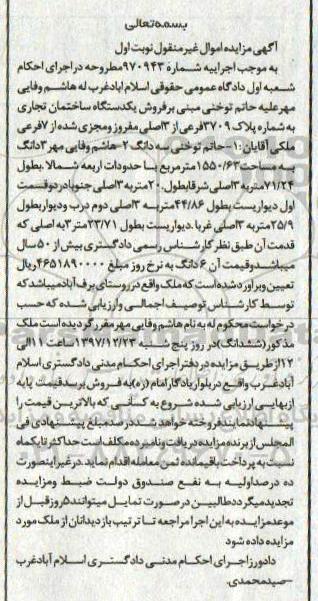 بسمه تعالی
آگهی مزایده اموال غیر منقول نوبت اول
به موجب اجراییه شماره ۹۷۰۹۴۳ مطروحه در اجرای احکام
شعبه اول دادگاه عمومی حقوقی اسلام ابادغرب له هاشم وفایی
مهر علیه حاتم توختی مبنی بر فروش یکدستگاه ساختمان تجاری
به شماره پلاک ۳۷۰۹فرعی از ۳اصلی مفروز ومجزی شده از ۷فرعی
ملکی آقایان: ۱-حاتم توختی سه دانگ ۲-هاشم وفایی مهر ۳دانگ
به مساحت ۱۵۵۰/۶۳ مترمربع با حدودات اربعه شمالا .بطول
۷۱/۲۴متربه ۳اصلی شرقابطول.۲۰متربه ۳اصلی جنوبادردوقسمت
اول دیواریست بطول ۴۴/۸۶ متربه ۳اصلی دوم درب ودیواربطول
۲۵/۹متربه ۳اصلی غربا.دیواریست بطول ۲۳/۷۱ متر۳به اصلی که
قدمت آن طبق نظر کارشناس رسمی دادگستری بیش از ۵۰سال
میباشدوقیمت آن ۶دانگ به نرخ روز مبلغ ۴۶۵۱۸۹۰۰۰۰ریال
تعیین وبرآورد شده است که ملک واقع در روستای برف آبادمیباشد که
توسط کارشناس توصیف اجمالی وارزیابی شده که حسب
درخواست محکوم له به نام هاشم وفایی مهر مقرر گردیده است ملک
مذکور(ششدانگ)در روز پنج شنبه ۱۳۹۷/۱۲/۲۳ساعت ۱۱الی
۱۲ازطریق مزایده دردفتر اجرای احکام مدنی دادگستری اسلام
آبادغرب واقع در بلوار یادگار امام (ره)به فروش برسدقیمت پایه
ازبهایی ارزیابی شده شروع به کسانی که بالاترین قیمت را
پیشنهادنمایندفروخته خواهد شدده رصد مبلغ پیشنهادی فی
المجلس از برنده مزایده دریافت ونامبرده مکلف است حداکثر تا یکماه
نسبت به پرداخت باقیمانده ثمن معامله اقدام نماید.در غیر اینصورت
ده درصداولیه به نفع صندوق دولت ضبط ومزایده
تجدیدمیگردد طالبین در صورت تمایل میتوانند۵روز قبل از
موعدمزایده به این اجرا مراجعه تا ترتیب بازدیدانان از ملک مورد
مزایده داده شود
دادورزاجرای احکام مدنی دادگستری اسلام آبادغرب
-صیدمحمدی.